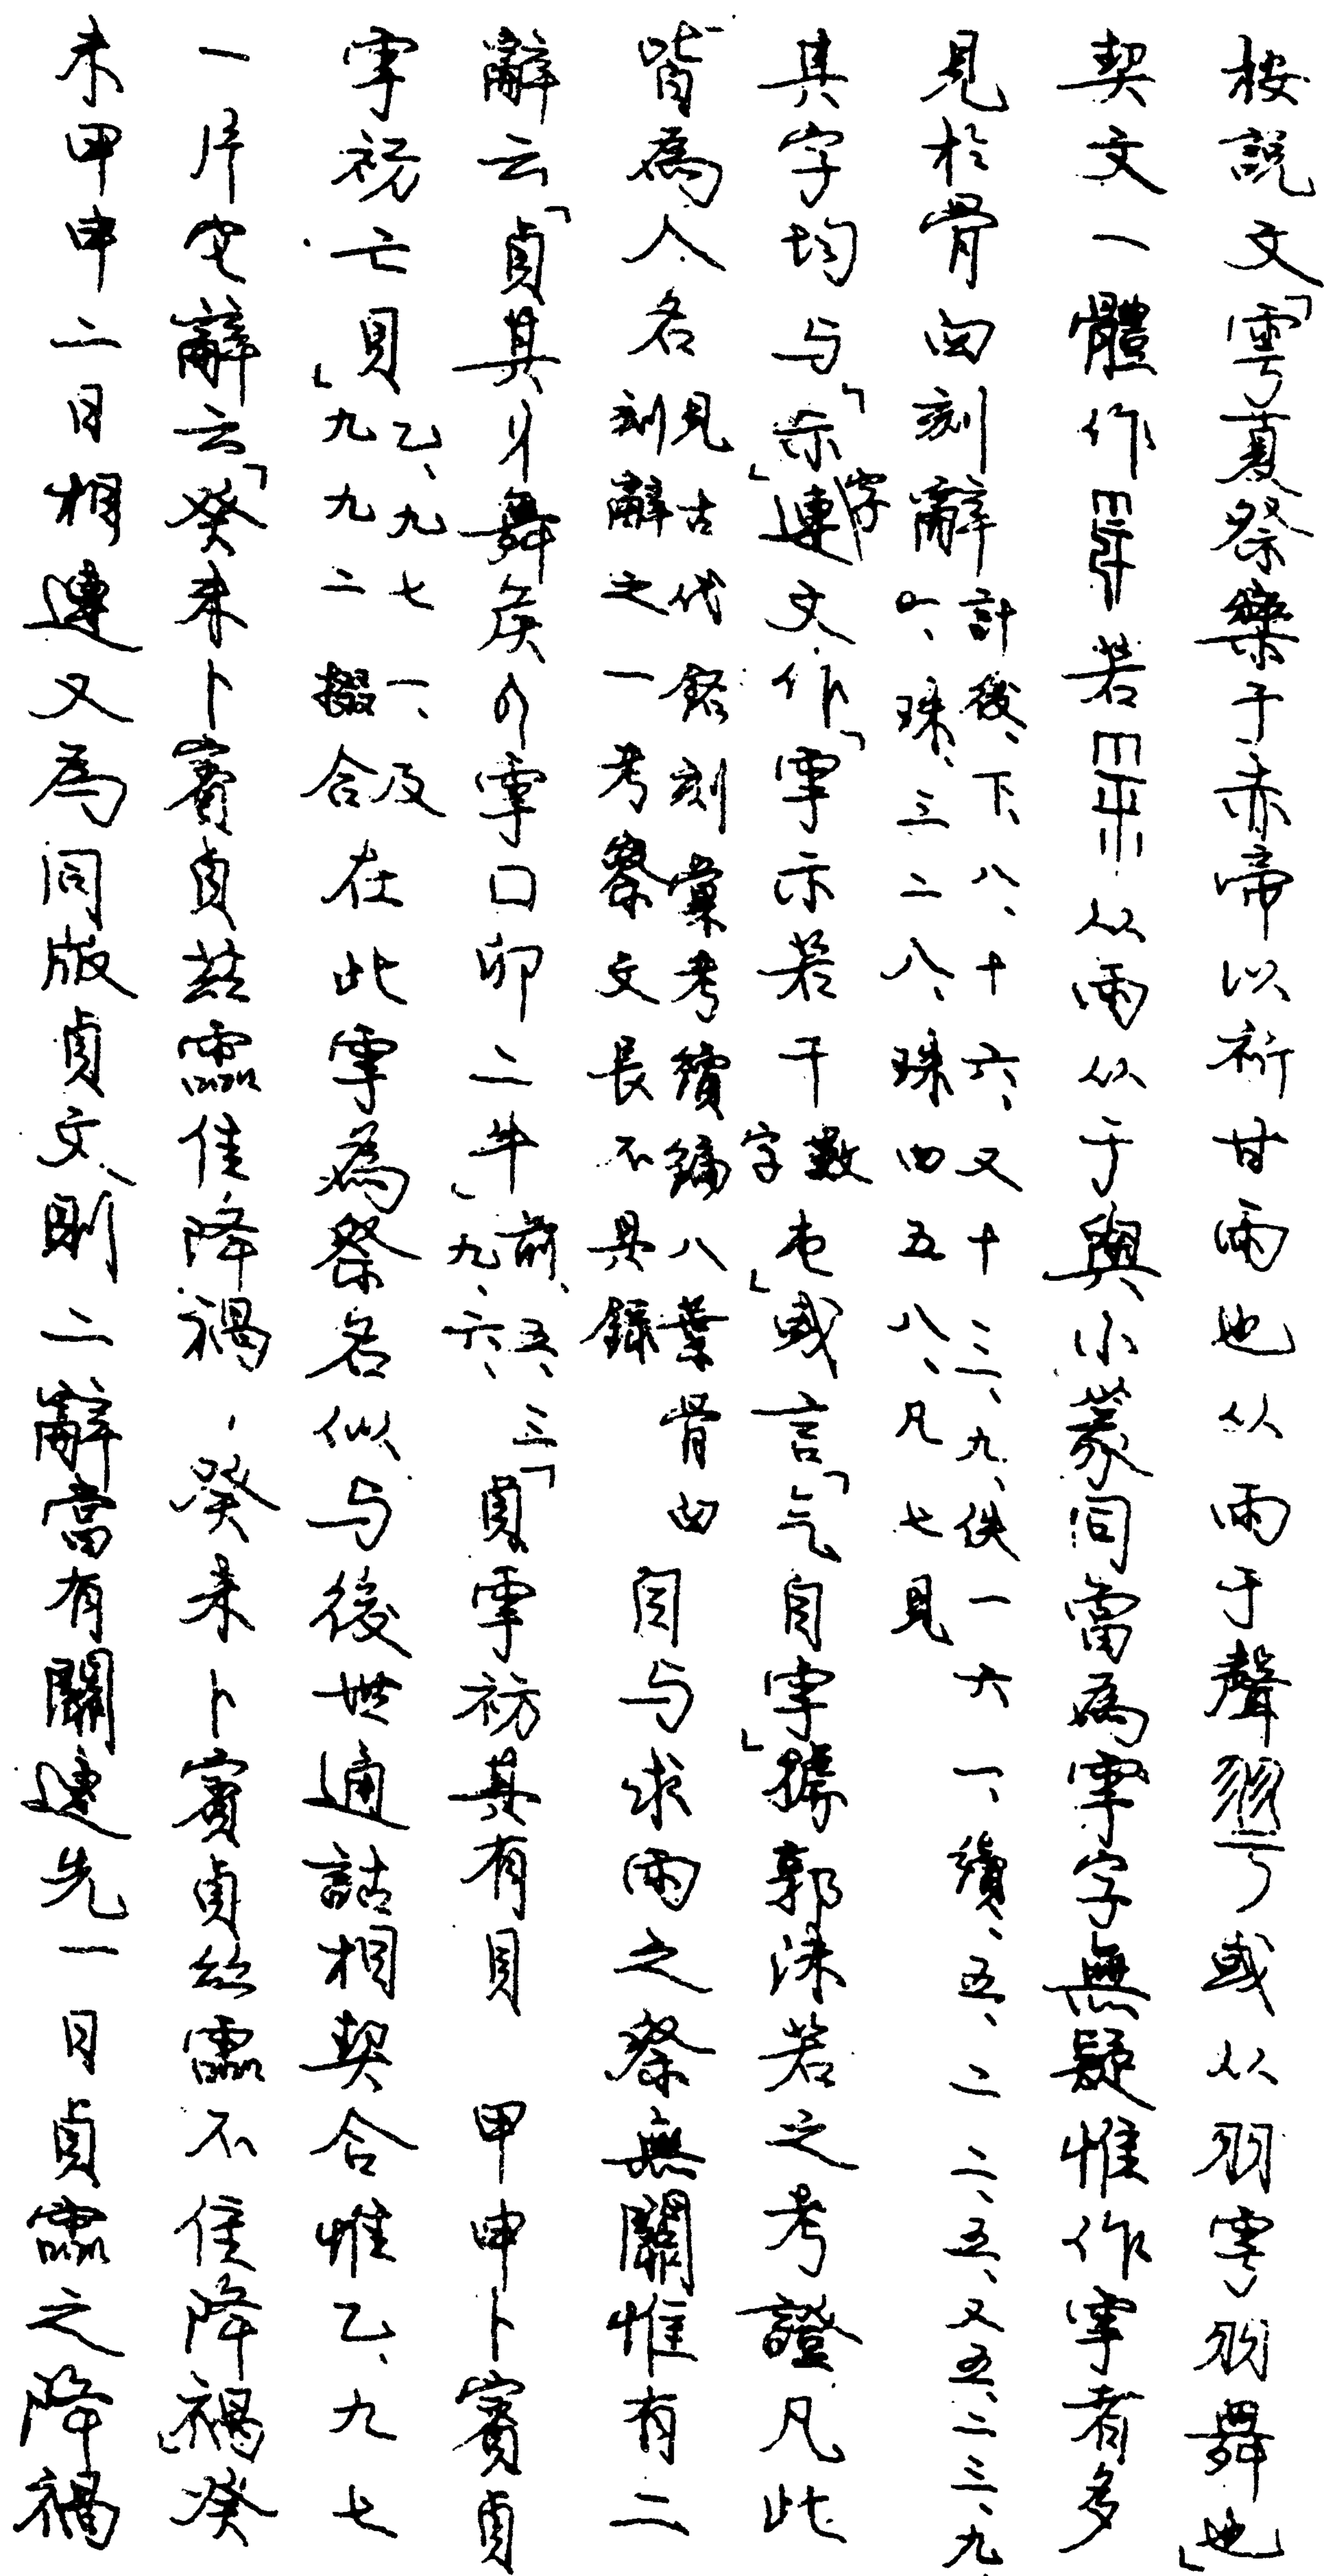 按說文「雩夏祭樂于赤帝以祈甘雨也从雨于聲𩁹或从羽雩羽舞也」
契文一體作若从雨从于與小篆同當為雩字無疑惟作雩者多
見於骨臼刻辭計後、下、八、十六、又十三、九、佚一六一、續、五、二二、五、又五、二三、九、珠、三二八、珠四五八、凡七見
其字均与「示」字連文作「雩示若干數字屯」或言「气自雩」據郭沫若之考證凡此
皆為人名見古代銘刻彙考續編八葉骨臼刻辭之一考察文長不具錄自与求雨之祭無關惟有二
辭云「貞其舞侯雩口卯二牛」前、五、三九、六、「貞雩祊其有貝 甲申卜賓貞
雩祊亡貝」乙、九七一、及九九二掇合在此雩為祭名似与後世通詁相契合惟乙、九七
一片它辭云「癸未卜賓貞茲霝隹降禍、癸未卜賓貞茲霝不隹降禍」癸
未甲申二日相連又為同版貞文、則二辭當有關連先一日貞霝之降禍